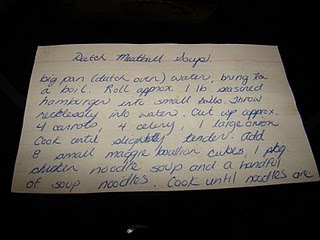 Dutch Meatball Soup!
big pan (dutch oven) water, bring to
a boil. Roll approx. 1 lb seasoned
hamburger into small balls. Throw
recklessly into water. Cut up approx.
4 carrots, 4 celery, 1 large onion
Cook until slightly tender. Add
8 small maggie boullion cubes, 1 pkg
chicken noodle soup and a handful
of soup noodles. Cook until noodles are